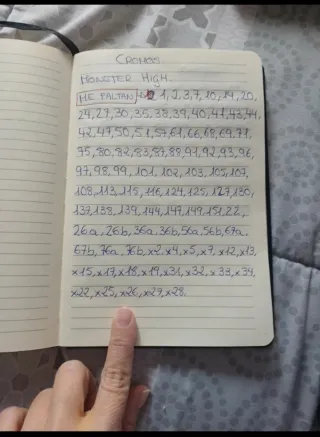 CROMOS.
MONSTER HIGH.
ME FALTAN 1, 2, 3, 7, 10, 14, 20,
24, 27, 30, 35, 38, 39, 40, 41, 43, 44,
42, 47, 50, 51, 57, 61, 66, 68, 69, 71,
75, 80, 82, 83, 87, 88, 91, 92, 93, 96,
97, 98, 99, 101, 102, 103, 105, 107,
108, 113, 115, 116, 124, 125, 127, 130,
137, 138, 139, 144, 147, 149, 151, 22,
26a, 26b, 36a, 36b, 56a, 56b, 67a,
67b, 76a, 76b, x2, x4, x5, x7, x12, x13,
x15, x17, x18, x19, x31, x32, x33, x34,
x22, x25, x26, x27, x28.